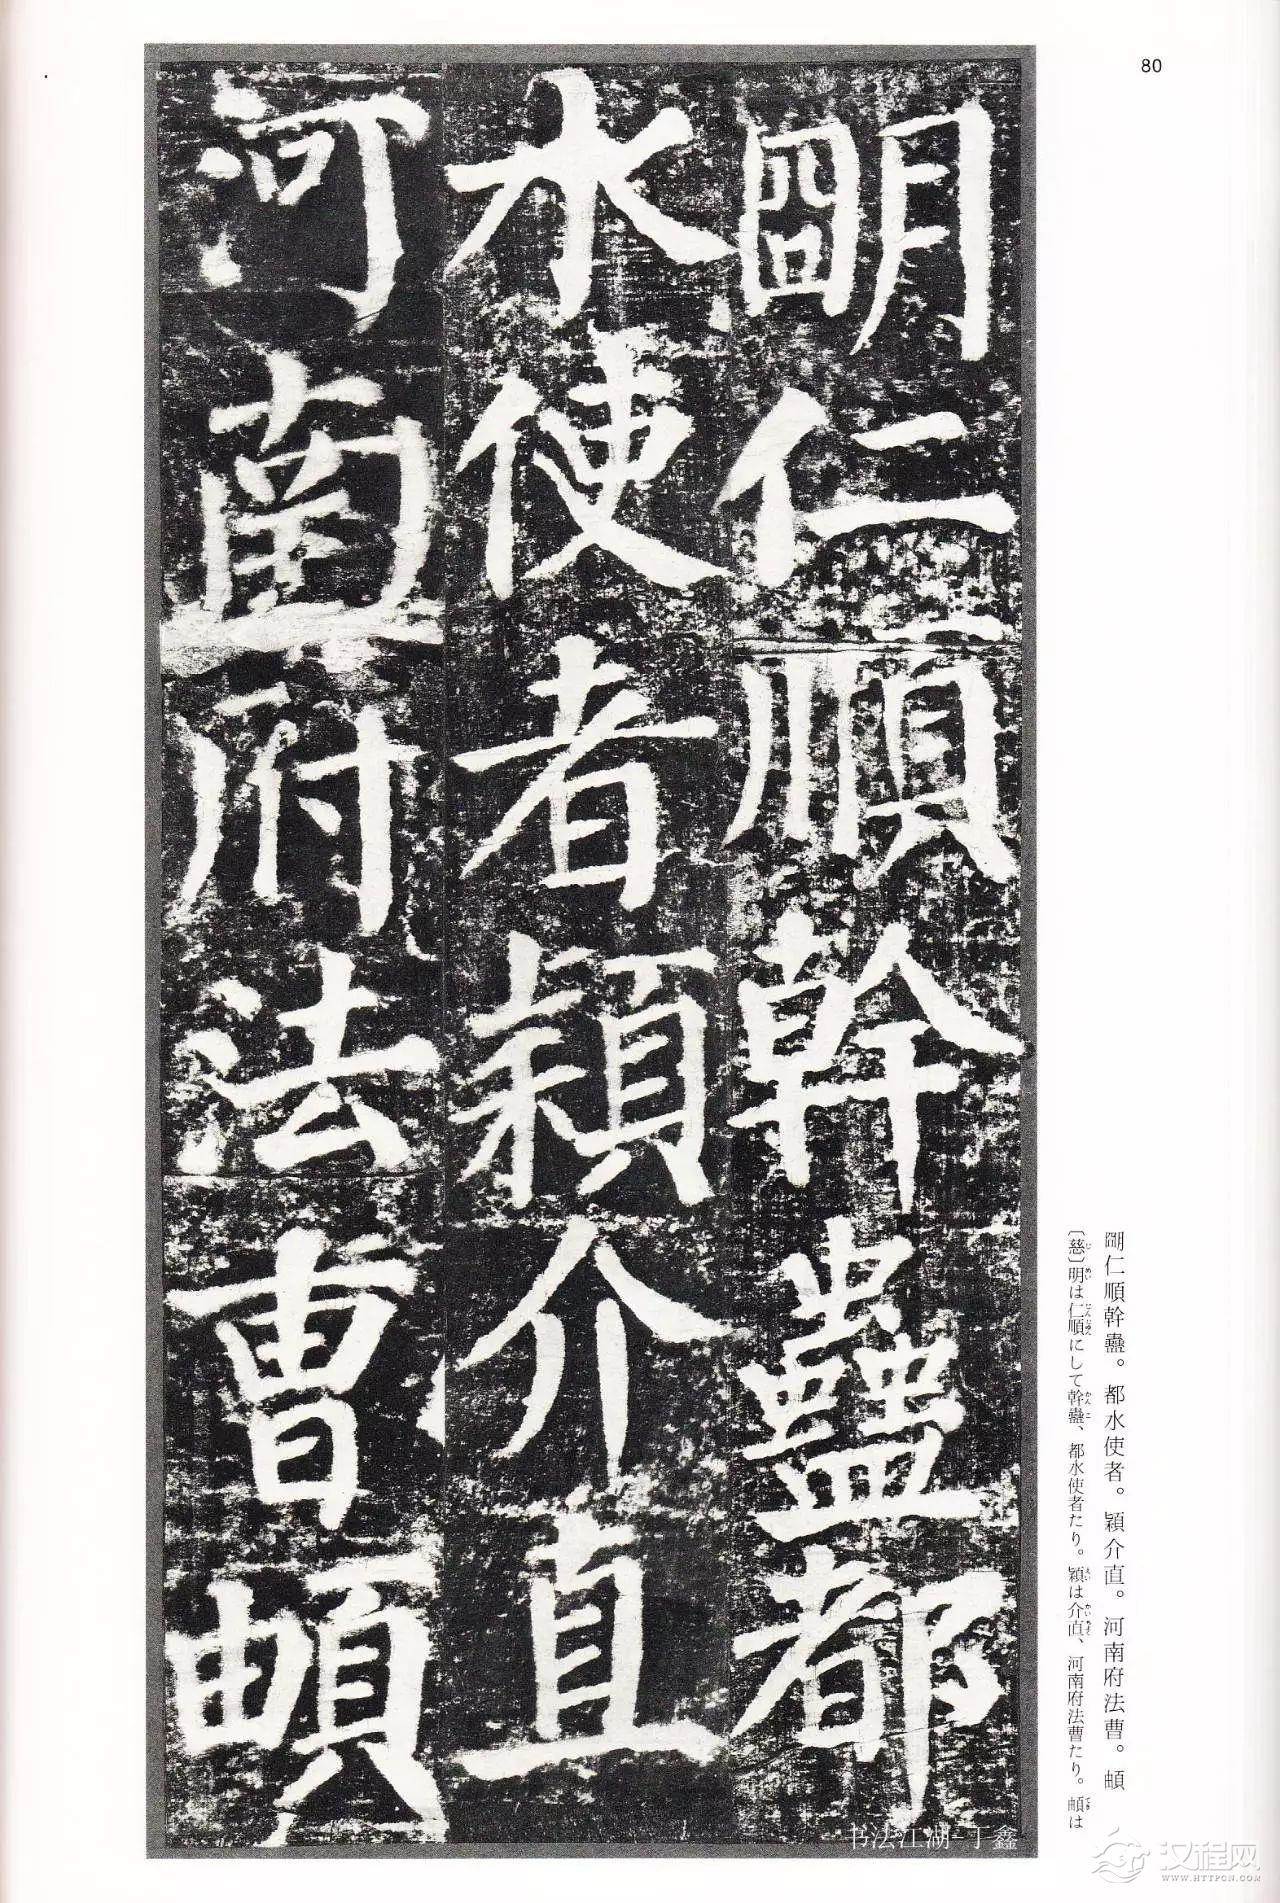 80
朙仁順幹蠱都
水使者頴介直
河南府法曹頔
朙仁順幹蠱。都水使者。穎介直。河南府法曹。頔
〔慈〕明は仁順にして幹蠱、都水使者たり。穎は介直、河南府法曹たり。頔は
书法江湖-丁鑫
汉程网
WWW.HTTPCN.COM